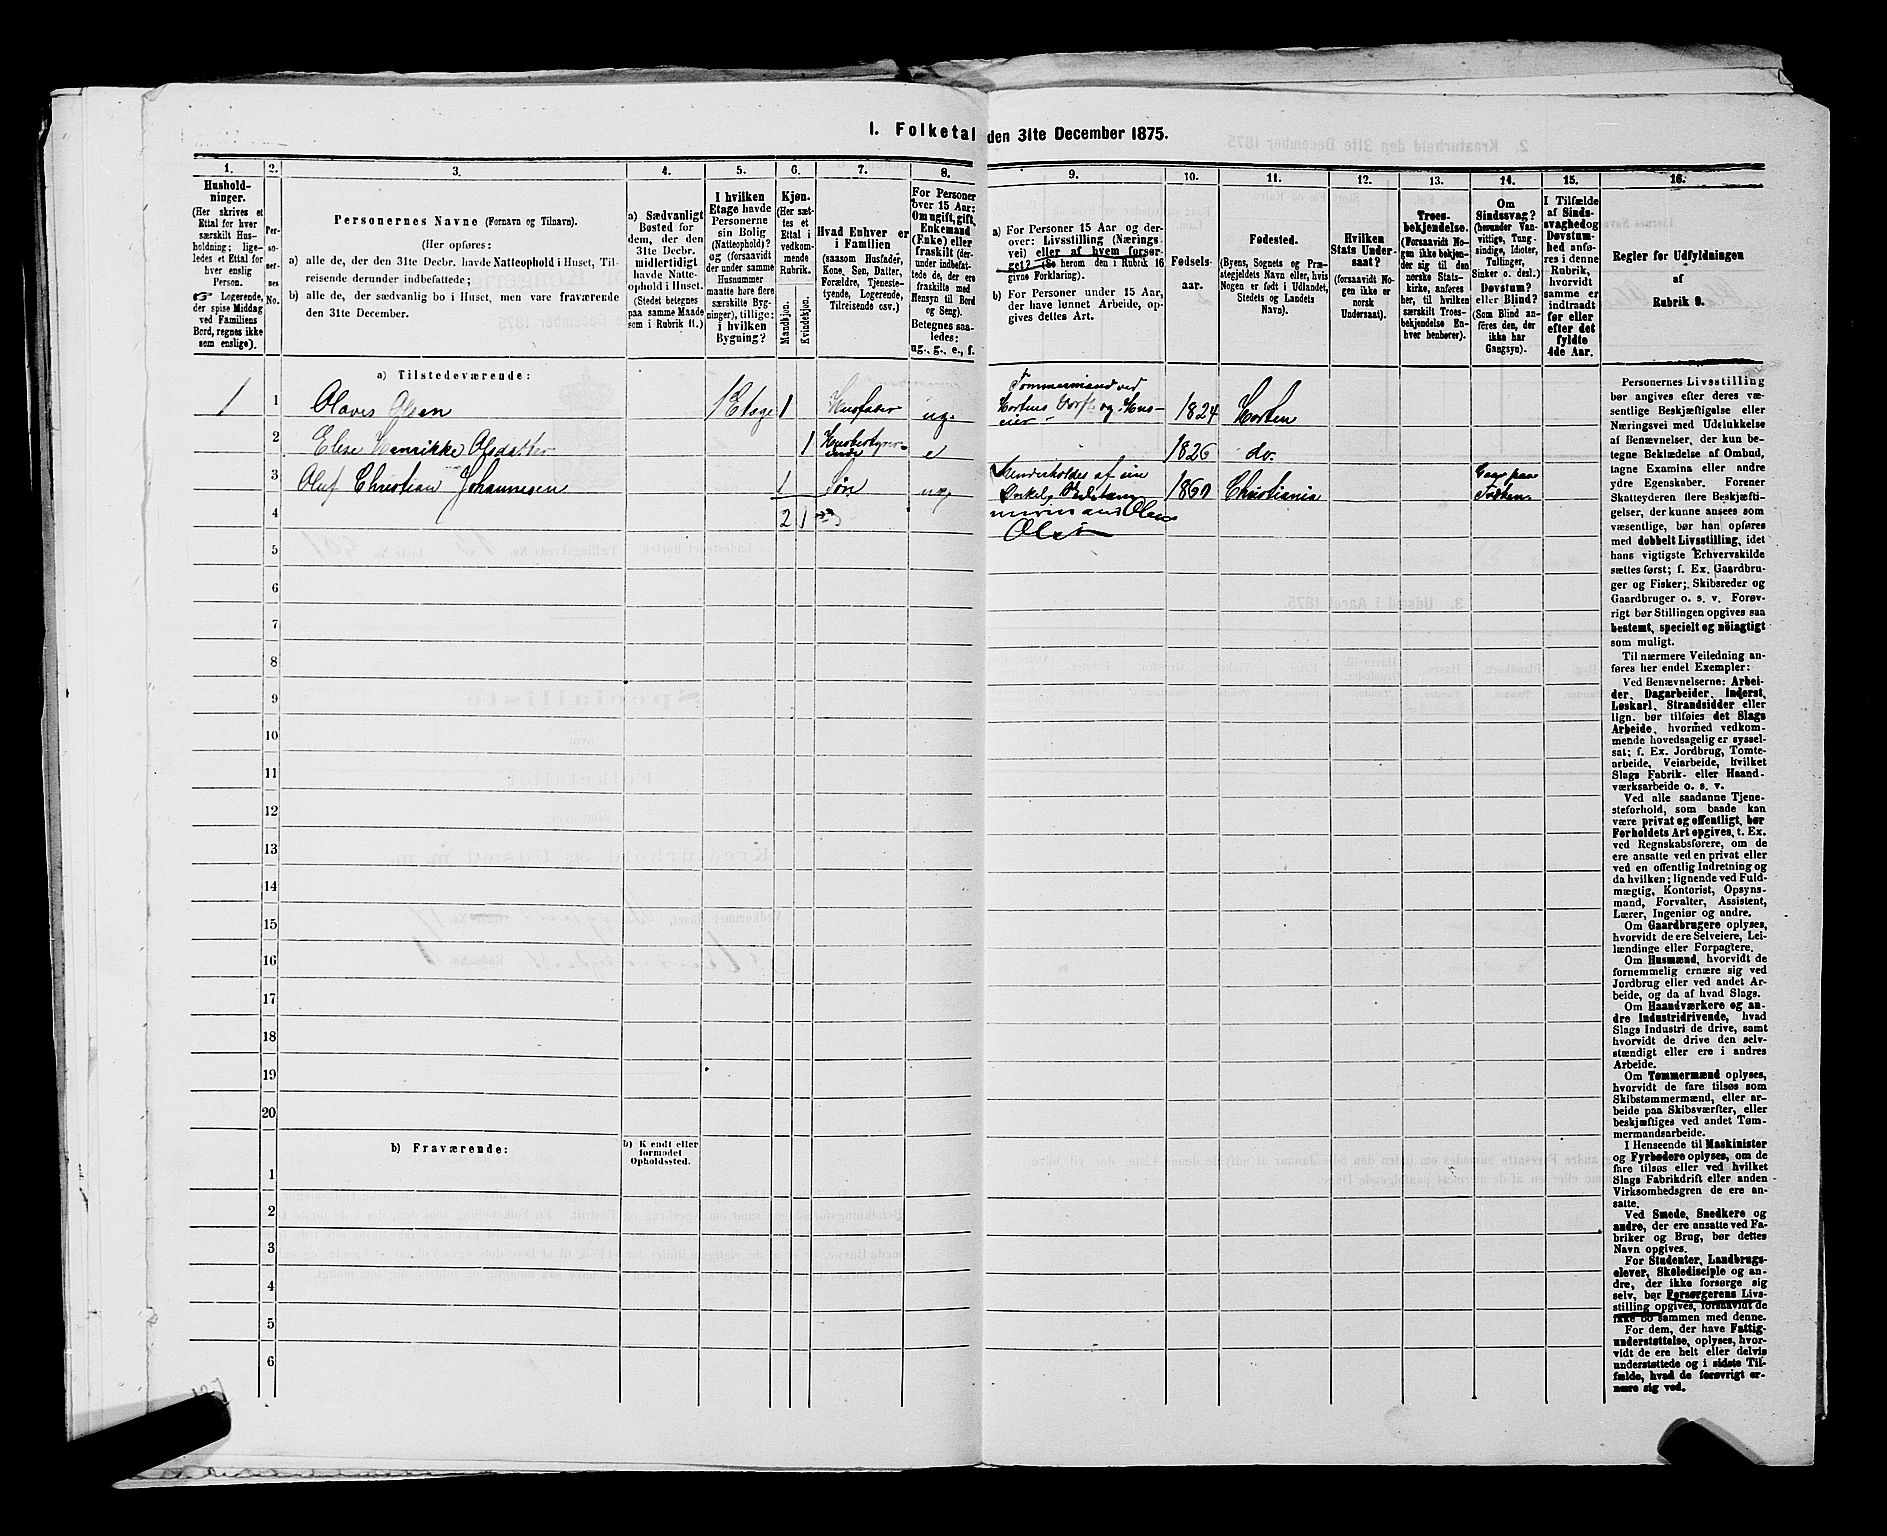 I. Folketal den 31te December 1875.
1.
Hushold-
ninger.
(Her skrives et
Ettal for hver
særskilt Hus-
holdning; lige-
ledes et Ettal for
hver enslig
Person.
☞ Logerende,
der spise Middag
ved Familiens
Bord, regnes ikke
som enslige).
2.
Per-
so-
ner-
nes
No.
3.
Personernes Navne (Fornavn og Tilnavn).
(Her opføres:
a) alle de, der den 31te Decbr. havde Natteophold i Huset, Til-
reisende derunder indbefattede;
b) alle de, der sædvanlig bo i Huset, men vare fraværende
den 31te December.
4.
a) Sædvanligt
Bosted for
dem, der den
31te Decbr.
midlertidigt
havde Natte-
ophold i Huset.
(Stedet betegnes
paa samme Maade
som i Rubrik 11.)
5.
I hvilken
Etage havde
Personerne
sin Bolig
(Natteophold)?
og (forsaavidt
der under samme
Husnummer
maatte høre flere
særskilte Byg-
ninger), tillige:
i hvilken
Bygning?
6.
Kjøn.
(Her sæt-
tes et
Ettal i
vedkom-
mende
Rubrik.
Mandkjøn.
Kvindekjøn.
7.
Hvad Enhver er
i Familien
(saasom Husfader,
Kone, Søn, Datter,
Forældre, Tjeneste-
tyende, Logerende,
Tilreisende osv.)
8.
For Personer
over 15 Aar:
Om ugift, gift,
Enkemand
(Enke) eller
fraskilt (der-
under indbefat-
tede de, der ere
fraskilte med
Hensyn til Bord
og Seng).
Betegnes saa-
ledes:
ug., g., e., f.
9.
a) For Personer 15 Aar og der-
over: Livsstilling (Nærings-
vei) eller af hvem forsør-
get? (Se herom den i Rubrik 16
givne Forklaring).
b) For Personer under 15 Aar,
der have lønnet Arbeide, op-
gives dettes Art.
10.
Fødsels-
aar.
11.
Fødested.
(Byens, Sognets og Præ-
stegjeldets Navn eller, hvis
Nogen er født i Udlandet,
Stedets og Landets
Navn).
12.
Hvilken
Stats Under-
saat?
(forsaavidt No-
gen ikke er
norsk
Undersaat).
13.
Troes-
bekjendelse.
(Forsaavidt No-
gen ikke bekjen-
der sig til den
norske Stats-
kirke, anføres
her, til hvilken
særskilt Troes-
bekjendelse En-
hver henhører).
14.
Om
Sindssvag?
(herunder Van-
vittige, Tung-
sindige, Idioter,
Tullinger,
Sinker o. desl.)
Døvstum?
eller Blind?
(Som Blind an-
føres den, der
ikke har
Gangsyn).
15.
I Tilfælde
af Sinds-
svaghed og
Døvstum-
hed anfø-
res i denne
Rubrik,
hvorvidt
samme er
indtraadt
før eller
efter det
fyldte
4de Aar.
16.
Regler for Udfyldningen
af
Rubrik 9.
a) Tilstedeværende:
1 1 Olaves Olsen 1 Etage 1 Husfader ug. Tømmermand ved
Hortens Værft og Hus-
eier 1824 Horten
2 Elise Henrikke Olsdatter 1 Husbestyrer-
inde e 1826 do.
3 Oluf Christian Johannesen 1 Søn ug. Underholdes af sin
Onkel 1860 Christiania
4 2 1 Olsen
5
6
7
8
9
10
11
12
13
14
15
16
17
18
19
20
b) Fraværende:
b) Kjendt eller
formodet
Opholdssted.
1
2
3
4
5
6
Personernes Livsstilling
bør angives efter deres væ-
sentlige Beskjæftigelse eller
Næringsvei med Udelukkelse
af Benævnelser, der kun be-
tegne Beklædelse af Ombud,
tagne Examina eller andre
ydre Egenskaber. Forener
Skatteyderen flere Beskjæfti-
gelser, der kunne ansees som
væsentlige, bør han opføres
med dobbelt Livsstilling, idet
hans vigtigste Erhvervskilde
sættes først; f. Ex. Gaardbru-
ger og Fisker; Skibsreder og
Gaardbruger o. s. v. Forøv-
rigt bør Stillingen opgives saa
bestemt, specielt og nöiagtigt
som muligt.
Til nærmere Veiledning an-
føres her endel Exempler:
Ved Benævnelserne: Arbei-
der, Dagarbeider, Inderst,
Løskarl, Strandsidder eller
lign. bør tilføies det Slags
Arbeide, hvormed vedkom-
mende hovedsagelig er syssel-
sat; f. Ex. Jordbrug, Tomte-
arbeide, Veiarbeide, hvilket
Slags Fabrik- eller Haand-
værksarbeide o. s. v.
Ved alle saadanne Tjene-
steforhold, som baade kan
være privat og offentligt, bør
Forholdets Art opgives, t. Ex.
ved Regnskabsførere, om de
ere ansatte ved en privat eller
ved en offentlig Indretning og
da hvilken; lignende ved Fuld-
mægtig, Kontorist, Opsyns-
mand, Forvalter, Assistent,
Lærer, Ingeniør og andre.
Om Gaardbrugere oplyses,
hvorvidt de ere Selveiere, Lei-
lændinge eller Forpagtere.
Om Husmænd, hvorvidt de
fornemmelig ernære sig ved
Jordbrug eller ved andet Ar-
beide, og da af hvad Slags.
Om Haandværkere og an-
dre Industridrivende, hvad
Slags Industri de drive, samt
hvorvidt de drive den selv-
stændigt eller ere i andres
Arbeide.
Om Tømmermænd oplyses,
hvorvidt de fare tilsøs som
Skibstømmermænd, eller ar-
beide paa Skibsværfter, eller
beskjæftiges ved andet Tøm-
mermandsarbeide.
I Henseende til Maskinister
og Fyrbødere oplyses, om de
fare tilsøs eller ved hvilket
Slags Fabrikdrift eller anden
Virksomhedsgren de ere an-
satte.
Ved Smede, Snedkere og
andre, der ere ansatte ved Fa-
briker og Brug, bør dettes
Navn opgives.
For Studenter, Landbrugs-
elever, Skoledisciple og an-
dre, der ikke forsørge sig
selv, bør Forsørgerens Livs-
stilling opgives, forsaavidt de
ikke bo sammen med denne.
For dem, der have Fattig-
understøttelse, oplyses, hvor-
vidt de ere helt eller delvis
understøttede og i sidste Til-
fælde, hvad de forøvrigt er-
nære sig ved.